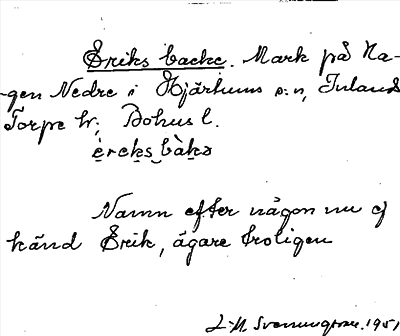 Eriks backe. Mark på Ha-
gen Nedre i Hjärtums s:n, Inlands
Torpe hr; Bohus l.
èreks bàkə
Namn efter någon nu ej
känd Erik, ägare troligen
1951